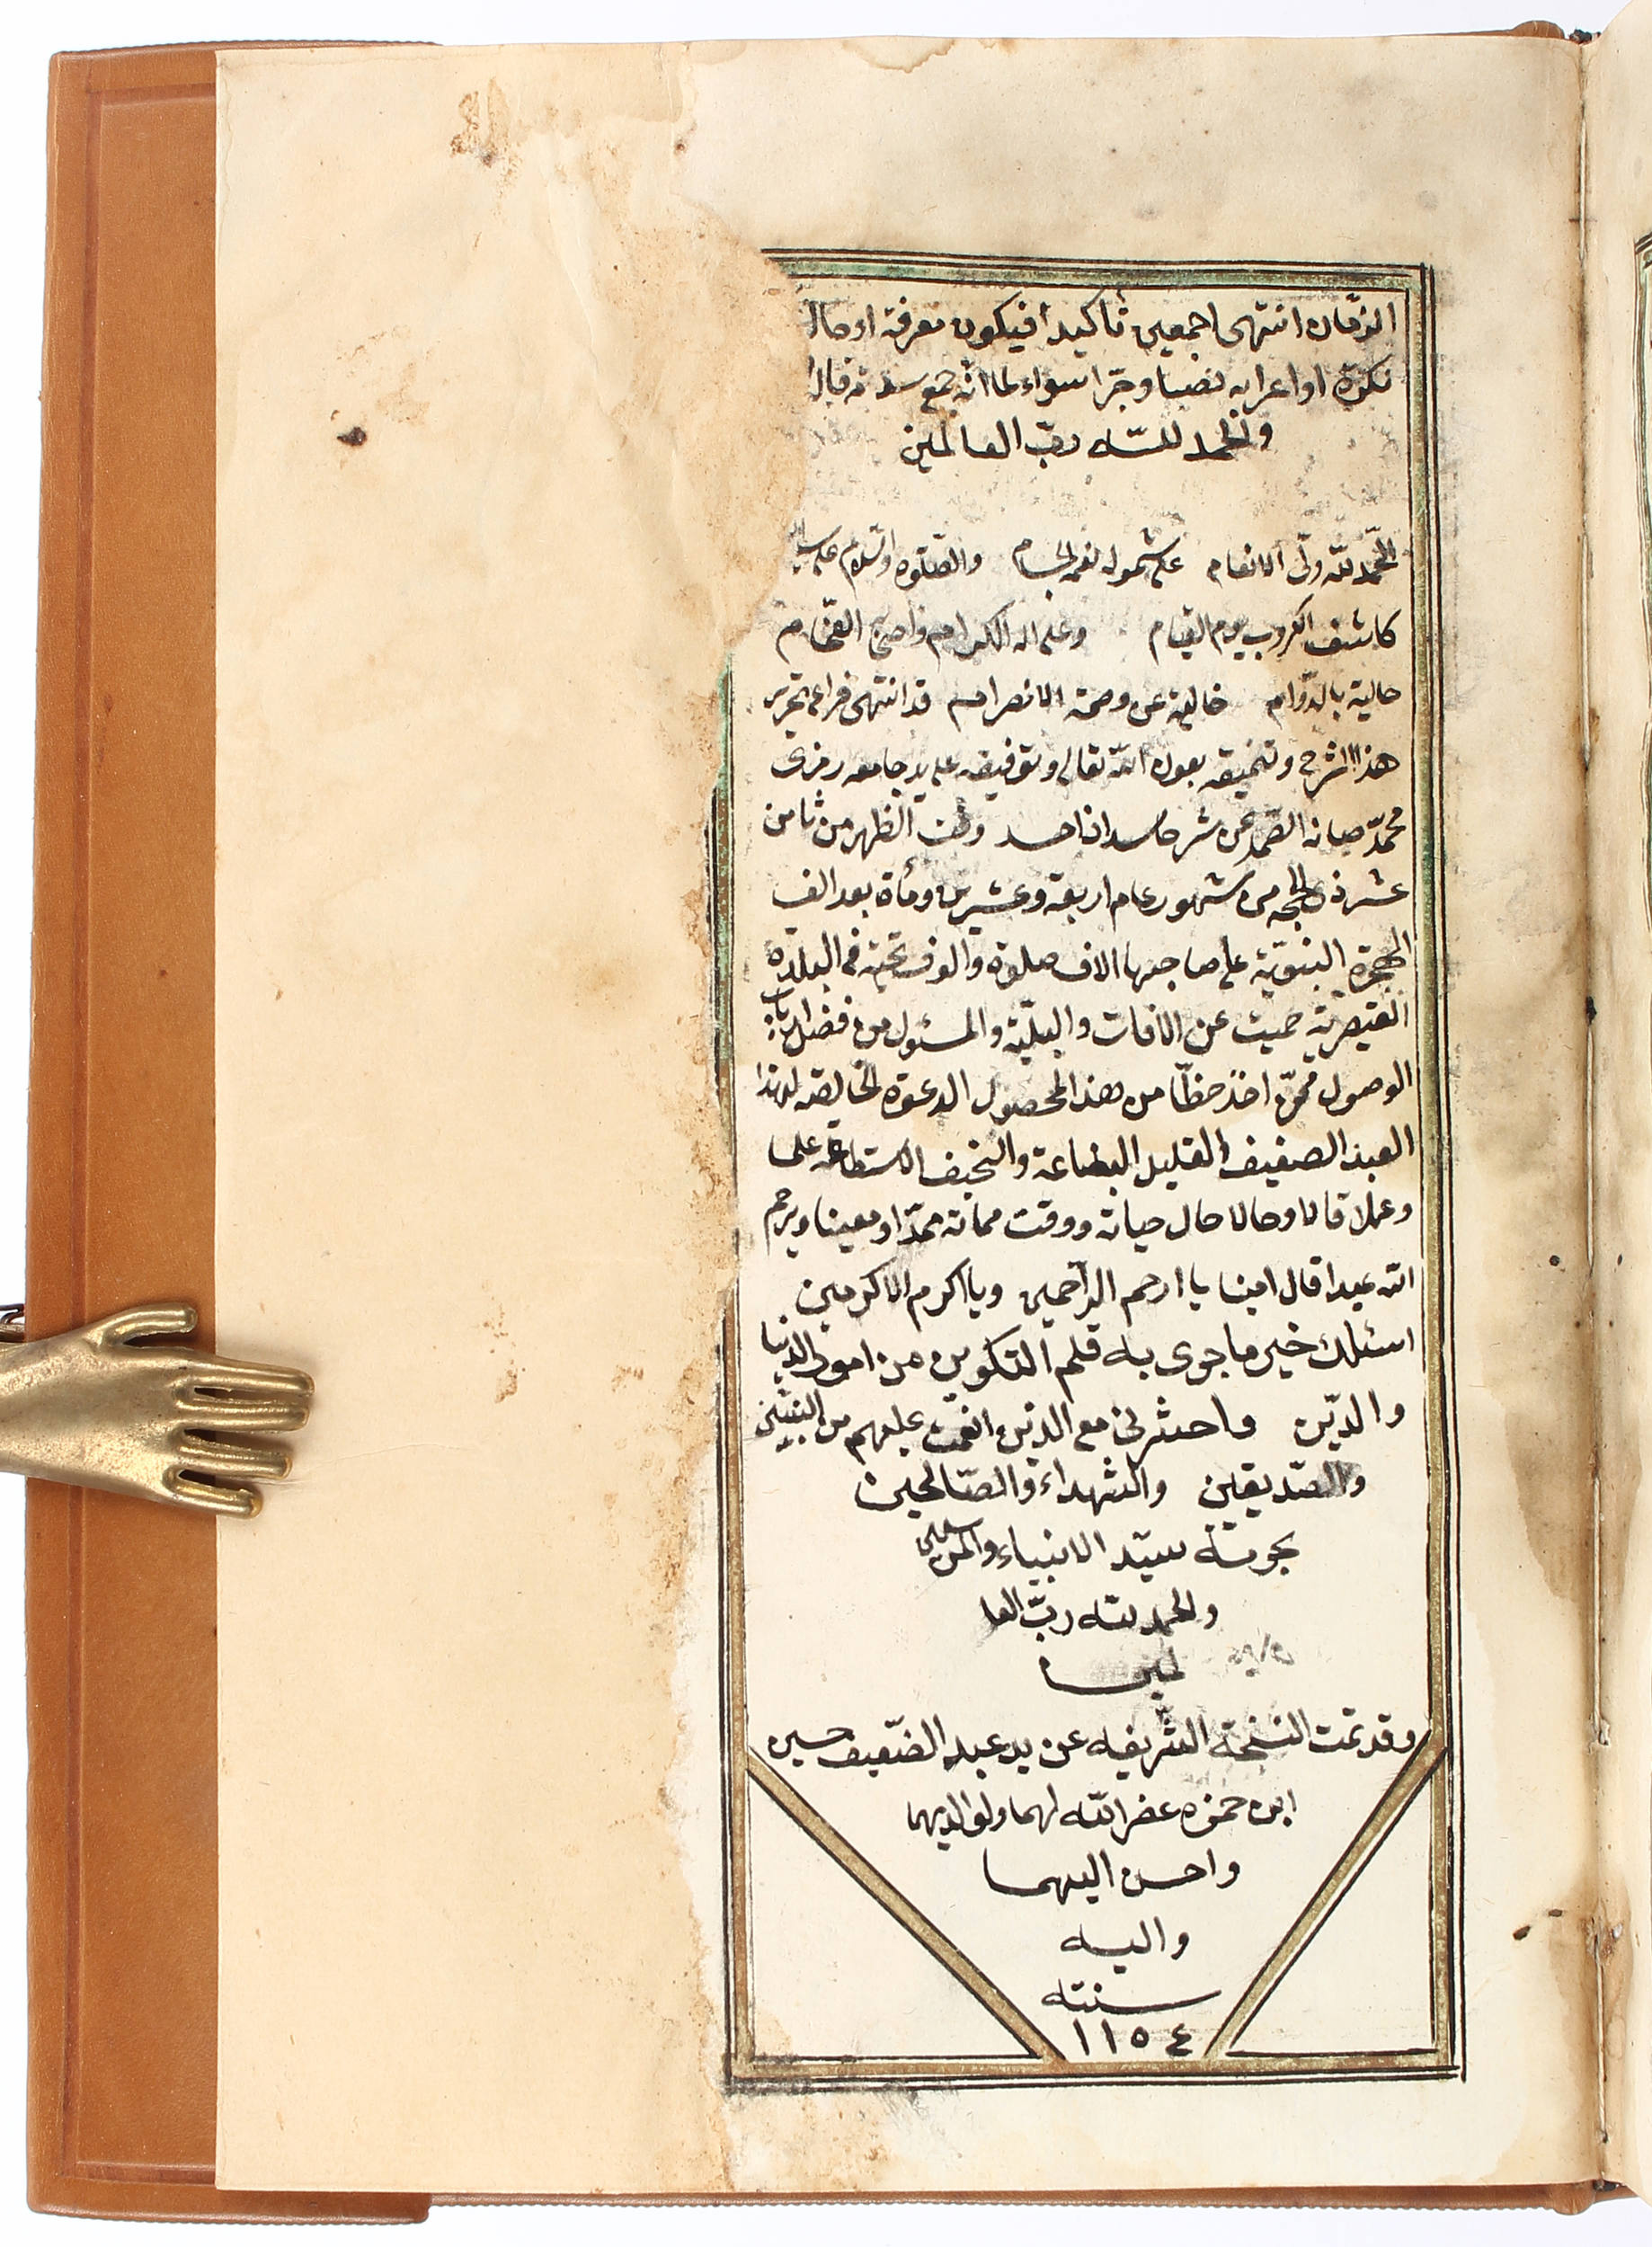 الزمان انتهى اجمعين تأكيدا فيكون معرفة او حال
نكرة او اعرابه نصبا وجرا سواء لما انه جمع
والحمد لله ربّ العالمين
الحمد لله ولى الانعام على شمول نعمه الجسام والصلوة والسلام على سيد
كاشف الكروب يوم القيام وعلى اله الكرام واصحابه الفخام
حالية بالدوام خالية عن وصمة الانصرام قد انتهى فراغ تحرير
هذا الشرح وتنميقه بعون الله تعالى وتوفيقه على يد جامعه رمزى
محمد صانه الصمد عن شر حاسد اذا حسد وقت الظهر من ثامن
عشر ذى الحجه من شهور عام اربعة وعشرين ومأة بعد الف
الهجرة النبوية على صاحبها الاف صلوة والوف تحية فى البلدة
القيصرية حميت عن الافات والبلية والمسئول من فضل ارباب
الوصول ممن اخذ حظّا من هذا المحصول الدعوة الخالصة لهذا
العبد الضعيف القليل البضاعة والنحيف الاستطاعة علما
وعملا قالا وحالا حال حياته ووقت مماته ممدّا ومعينا ويرحم
الله عبدا قال امينا يا ارحم الراحمين ويا اكرم الاكرمين
اسئلك خير ما جرى به قلم التكوين من امور الدنيا
والدّين واحشرنى مع الذين انعمت عليهم من النبيين
والصدّيقين والشهداء والصّالحين
بحرمة سيّد الانبياء والمرسلين
والحمد لله ربّ العا
لمين
وقد تمت النسخة الشريفه عن يد عبد الضّعيف حسين
ابن حمزه غفر الله لهما ولوالديهما
واحسن اليهما
واليه
سنه
١١٥٤